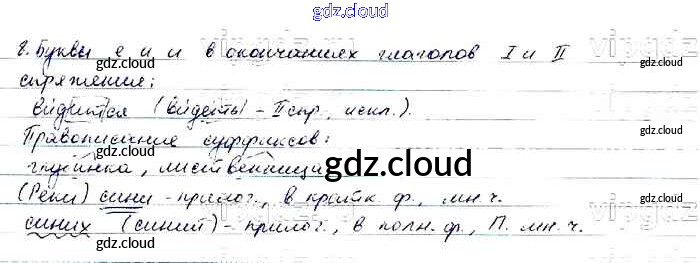 gdz.cloud
8. Буквы е и и в окончаниях глаголов I и II
спряжения:
видится (видеть - II спр., искл.).
Правописание суффиксов:
глубинка, лиственница
(Реки) сини - прилог., в кратк. ф., мн. ч.
синих (синий) - прилог., в полн. ф., П. мн. ч.
gdz.cloud
gdz.cloud
gdz.cloud
gdz.cloud
gdz.cloud
gdz.cloud
gdz.cloud